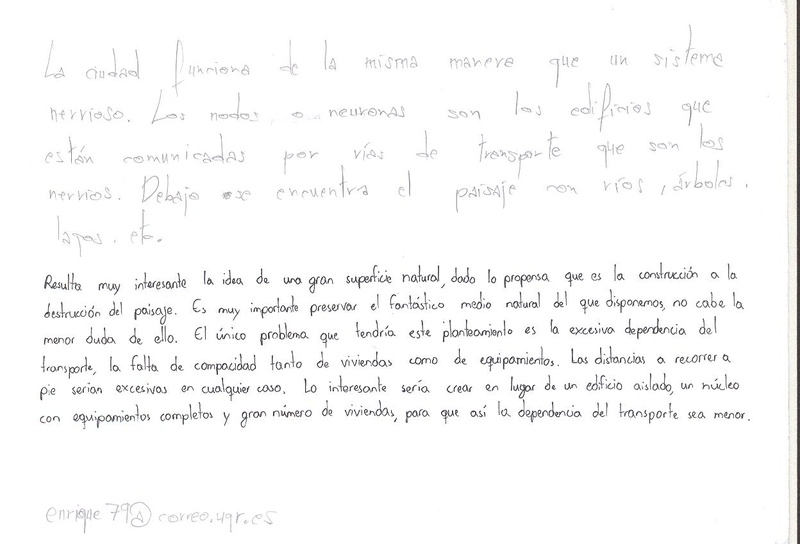 La ciudad funciona de la misma manera que un sistema
nervioso. Los nodos o neuronas son los edificios que
están comunicadas por vías de transporte que son los
nervios. Debajo se encuentra el paisaje con ríos, árboles,
lagos, etc.
Resulta muy interesante la idea de una gran superficie natural, dado lo propensa que es la construcción a la
destrucción del paisaje. Es muy importante preservar el fantástico medio natural del que disponemos, no cabe la
menor duda de ello. El único problema que tendría este planteamiento es la excesiva dependencia del
transporte, la falta de compacidad tanto de viviendas como de equipamientos. Las distancias a recorrer a
pie serían excesivas en cualquier caso. Lo interesante sería crear en lugar de un edificio aislado, un núcleo
con equipamientos completos y gran número de viviendas, para que así la dependencia del transporte sea menor.
enrique79@correo.ugr.es